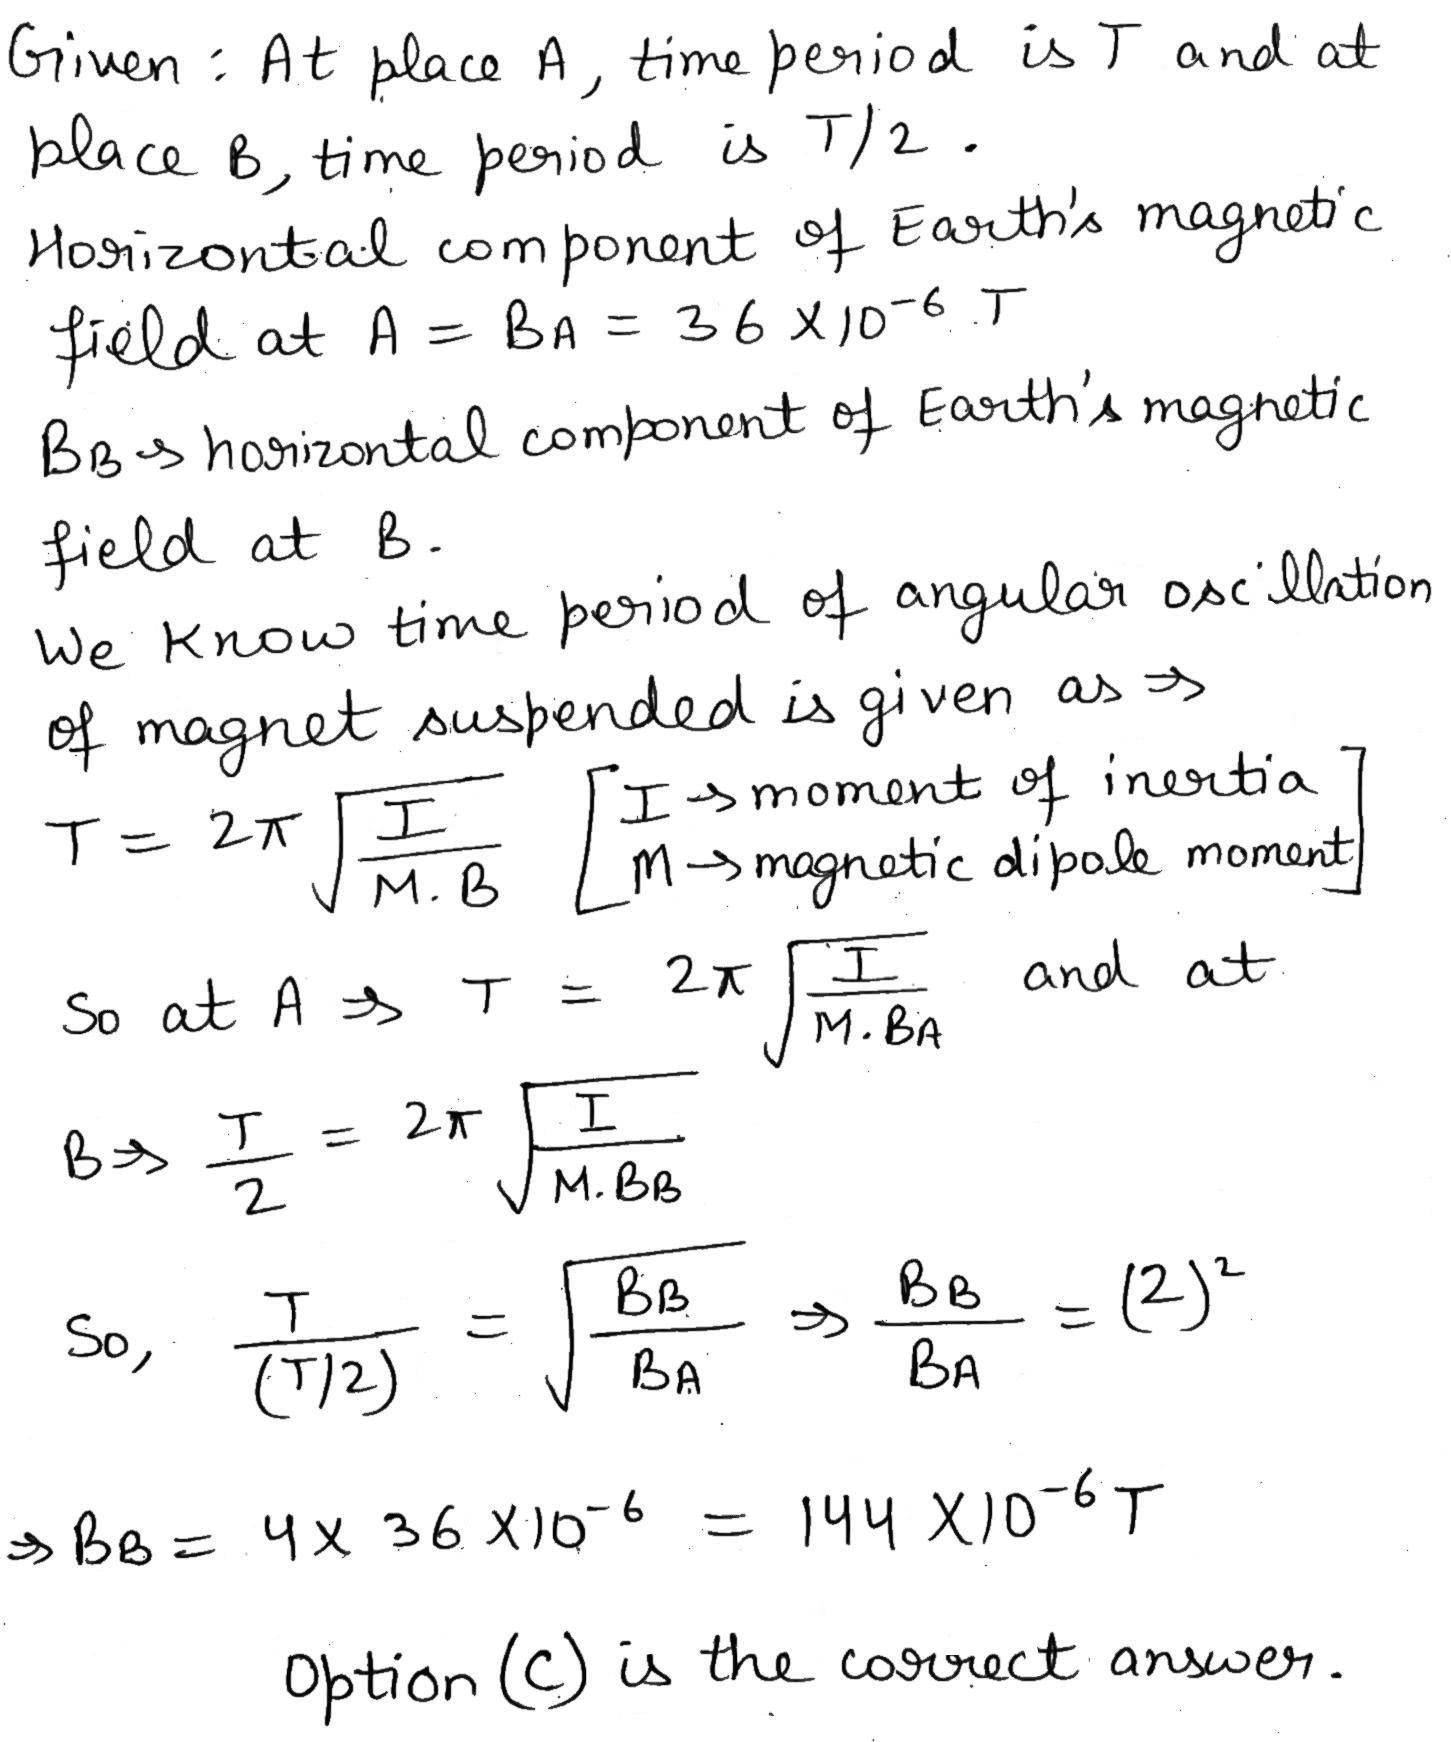 Given : At place A, time period is T and at
place B, time period is T/2 .
Horizontal component of Earth's magnetic
field at A = BA = 36 × 10⁻⁶ T
BB → horizontal component of Earth's magnetic
field at B.
We know time period of angular oscillation
of magnet suspended is given as ⇒
T = 2π √(I / M.B) [I → moment of inertia
M → magnetic dipole moment]
So at A ⇒ T = 2π √(I / M.BA) and at
B ⇒ T/2 = 2π √(I / M.BB)
So, T/(T/2) = √(BB/BA) ⇒ BB/BA = (2)²
⇒ BB = 4 × 36 × 10⁻⁶ = 144 × 10⁻⁶ T
Option (C) is the correct answer.